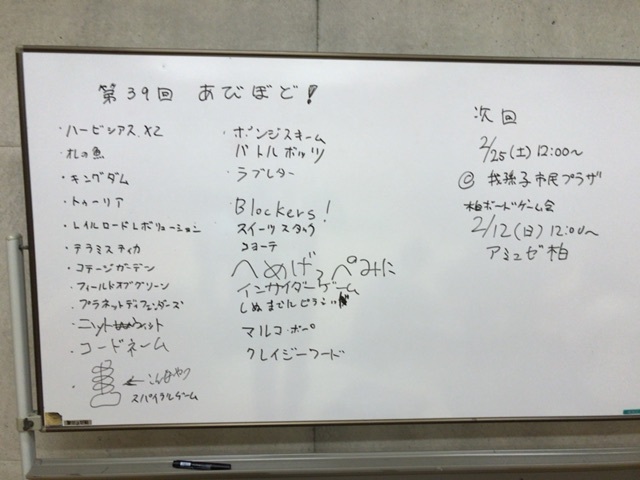 第39回 あびぼど!
・ハービシアス X2
・札の魚
・キングダム
・トゥーリア
・レイルロードレボリューション
・テラミスティカ
・コテージガーデン
・フィールドオブグリーン
・プラネットディフェンダーズ
・ニット
・コードネーム
・ ←こんなやつ
スパイラルゲーム
・ポンジスキーム
バトルボッツ
・ラブレター
Blockers!
・スイーツスタック
・コヨーテ
へめげろぺみに
インサイダーゲーム
しぬまでに
マルコ・ポーロ
クレイジーフード
次回
2/25(土) 12:00〜
@ 我孫子市民プラザ
柏ボードゲーム会
2/12(日) 12:00〜
アミュゼ柏